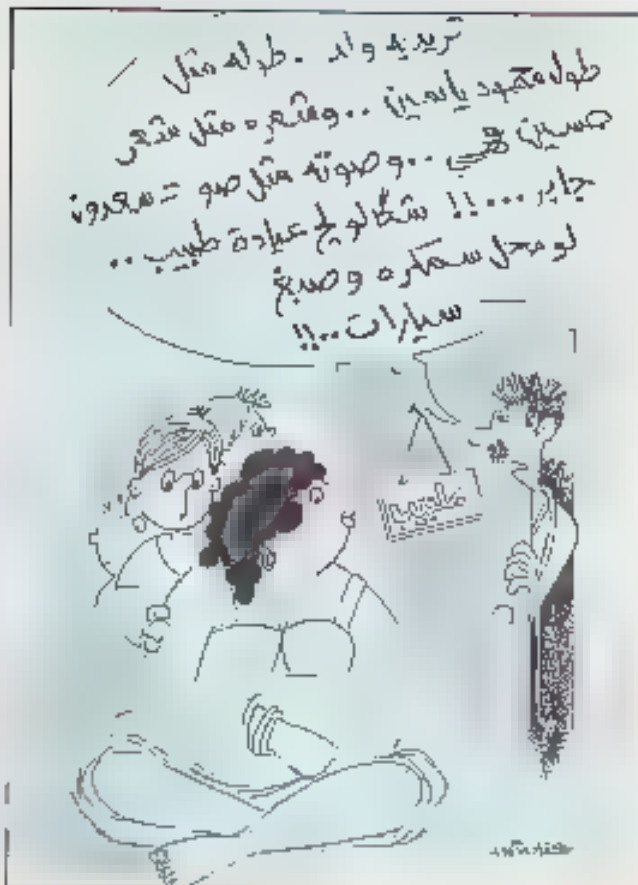 تريديه ولد .. طوله مثل
طول محمود ياسين .. وشعره مثل شعر
حسين فهمي .. وصوته مثل صوت سعدون
جابر ...!! شگالولچ عيادة طبيب ..
لو محل سمكره وصبغ
سيارات ..!!